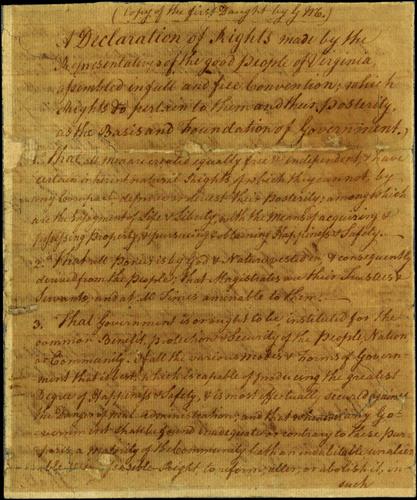 (Copy of the first Daught by G M.)
A Declaration of Rights made by the
Representatives of the good People of Virginia,
assembled in full and free Convention; which
Rights do pertain to them and their Posterity,
as the Basis and Foundation of Government.
1. That all men are created equally free & independent, & have
certain inherent natural Rights, of which they cannot, by
any Compact, deprive or divest their Posterity; among which
are the Enjoyment of Life & Liberty, with the Means of acquiring &
possessing Property, & pursueing & obtaining Happiness & Safety.
2. That all Power is by God & Nature vested in, & consequently
derived from the People; that Magistrates are their Trustees &
Servants, and at all Times amenable to them.
3. That Government is or ought to be instituted for the
common Benefit, protection & Security of the People, Nation
or Community. Of all the various modes & Forms of Govern-
ment, that is best, which is capable of producing the greatest
Degree of Happiness & Safety, & is most effectually secured against
the Danger of mal-administration; and that whenever any Go-
vernment shall be found inadequate or contrary to these pur-
poses, a majority of the Community hath an indubitable, unalien-
able & indefeasible Right to reform, alter, or abolish it, in
such